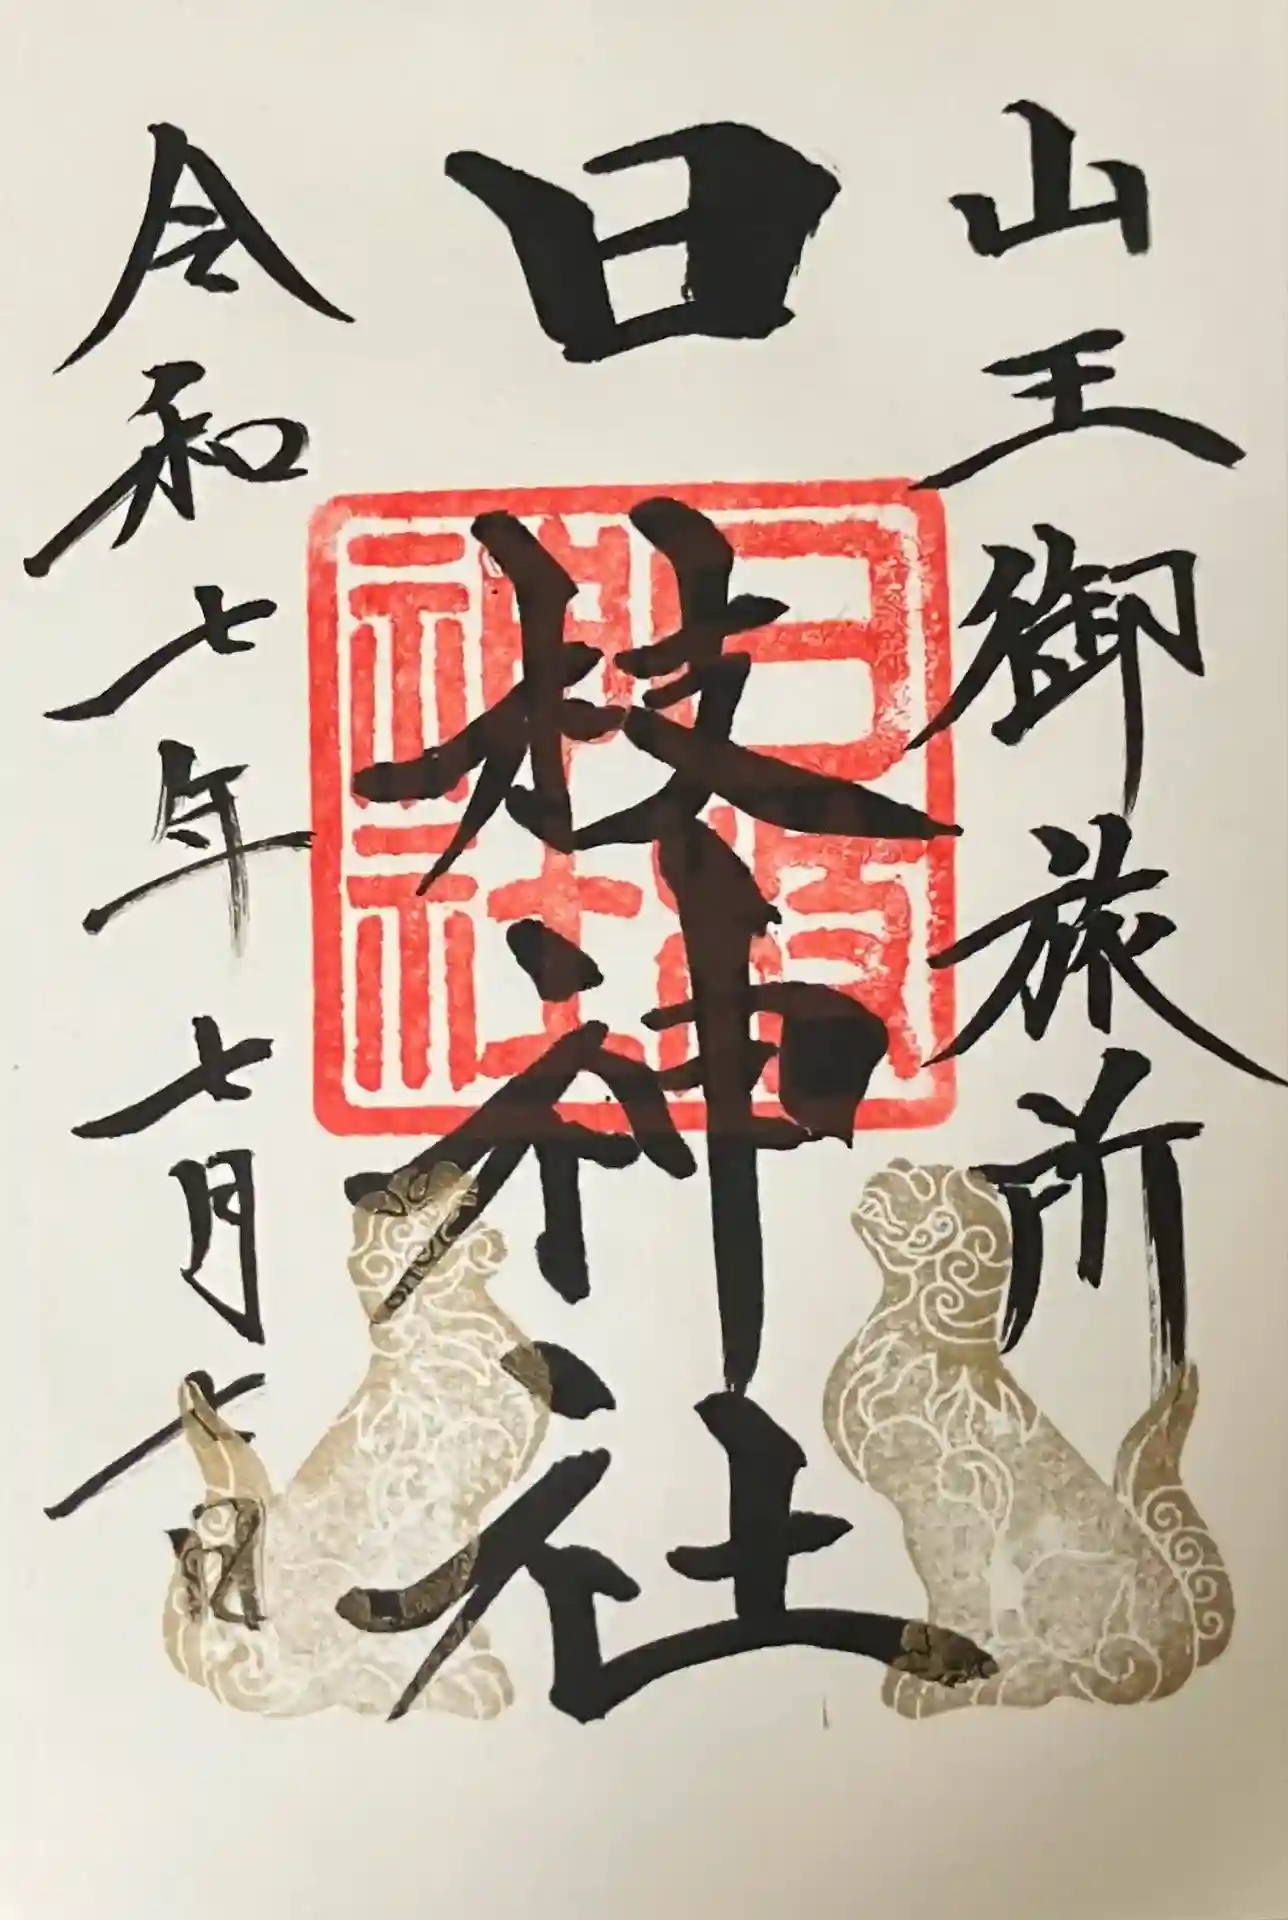 山王御旅所
日枝神社
令和七年七月七日
日枝神社